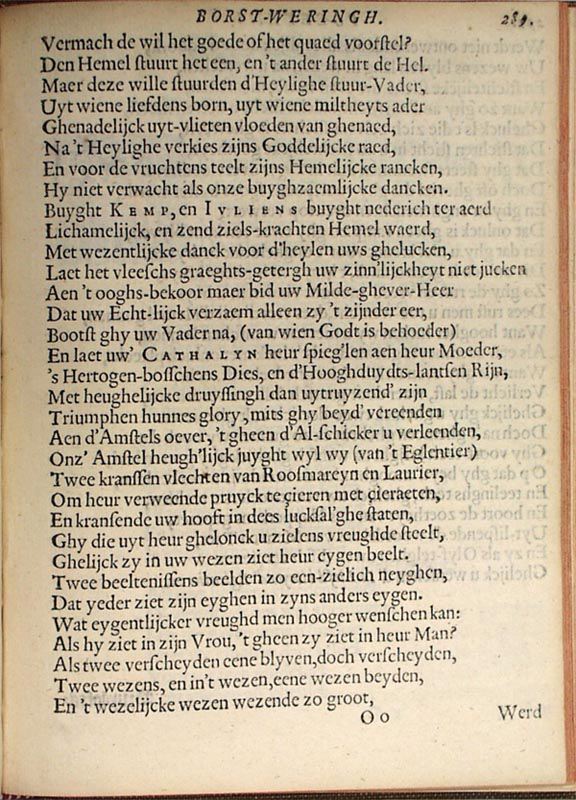 BORST-WERINGH. 289.
Vermach de wil het goede of het quaed voorstel?
Den Hemel stuurt het een, en 't ander stuurt de Hel.
Maer deze wille stuurden d'Heylighe stuur-Vader,
Uyt wiene liefdens born, uyt wiene miltheyts ader
Ghenadelijck uyt-vlieten vloeden van ghenaed,
Na 't Heylighe verkies zijns Goddelijcke raed,
En voor de vruchtens teelt zijns Hemelijcke rancken,
Hy niet verwacht als onze buyghzaemlijcke dancken.
Buyght KEMP, en IVLIENS buyght nederich ter aerd
Lichamelijck, en zend ziels-krachten Hemel waerd,
Met wezentlijcke danck voor d'heylen uws ghelucken,
Laet het vleeschs graeghts-getergh uw zinn'lijckheyt niet jucken
Aen 't ooghs-bekoor maer bid uw Milde-ghever-Heer
Dat uw Echt-lijck verzaem alleen zy 't zijnder eer,
Bootst ghy uw Vader na, (van wien Godt is behoeder)
En laet uw' CATHALYN heur spieg'len aen heur Moeder,
's Hertogen-bosschens Dies, en d'Hooghduydts-lantsen Rijn,
Met heughelijcke druyssingh dan uytruyzend' zijn
Triumphen hunnes glory, mits ghy beyd' vereenden
Aen d'Amstels oever, 't gheen d'Al-schicker u verleenden,
Onz' Amstel heugh'lijck juyght wyl wy (van 't Eglentier)
Twee kranssen vlechten van Roosmareyn en Laurier,
Om heur verweende pruyck te çieren met çieraeten,
En kransende uw hooft in dees lucksal'ghe staten,
Ghy die uyt heur ghelonck u zielens vreughde steelt,
Ghelijck zy in uw wezen ziet heur eygen beelt.
Twee beeltenissens beelden zo een-zielich neyghen,
Dat yeder ziet zijn eyghen in zyns anders eygen.
Wat eygentlijcker vreughd men hooger wenschen kan:
Als hy ziet in zijn Vrou, 't gheen zy ziet in heur Man?
Als twee verscheyden eene blyven, doch verscheyden,
Twee wezens, en in't wezen, eene wezen beyden,
En 't wezelijcke wezen wezende zo groot,
Oo Werd